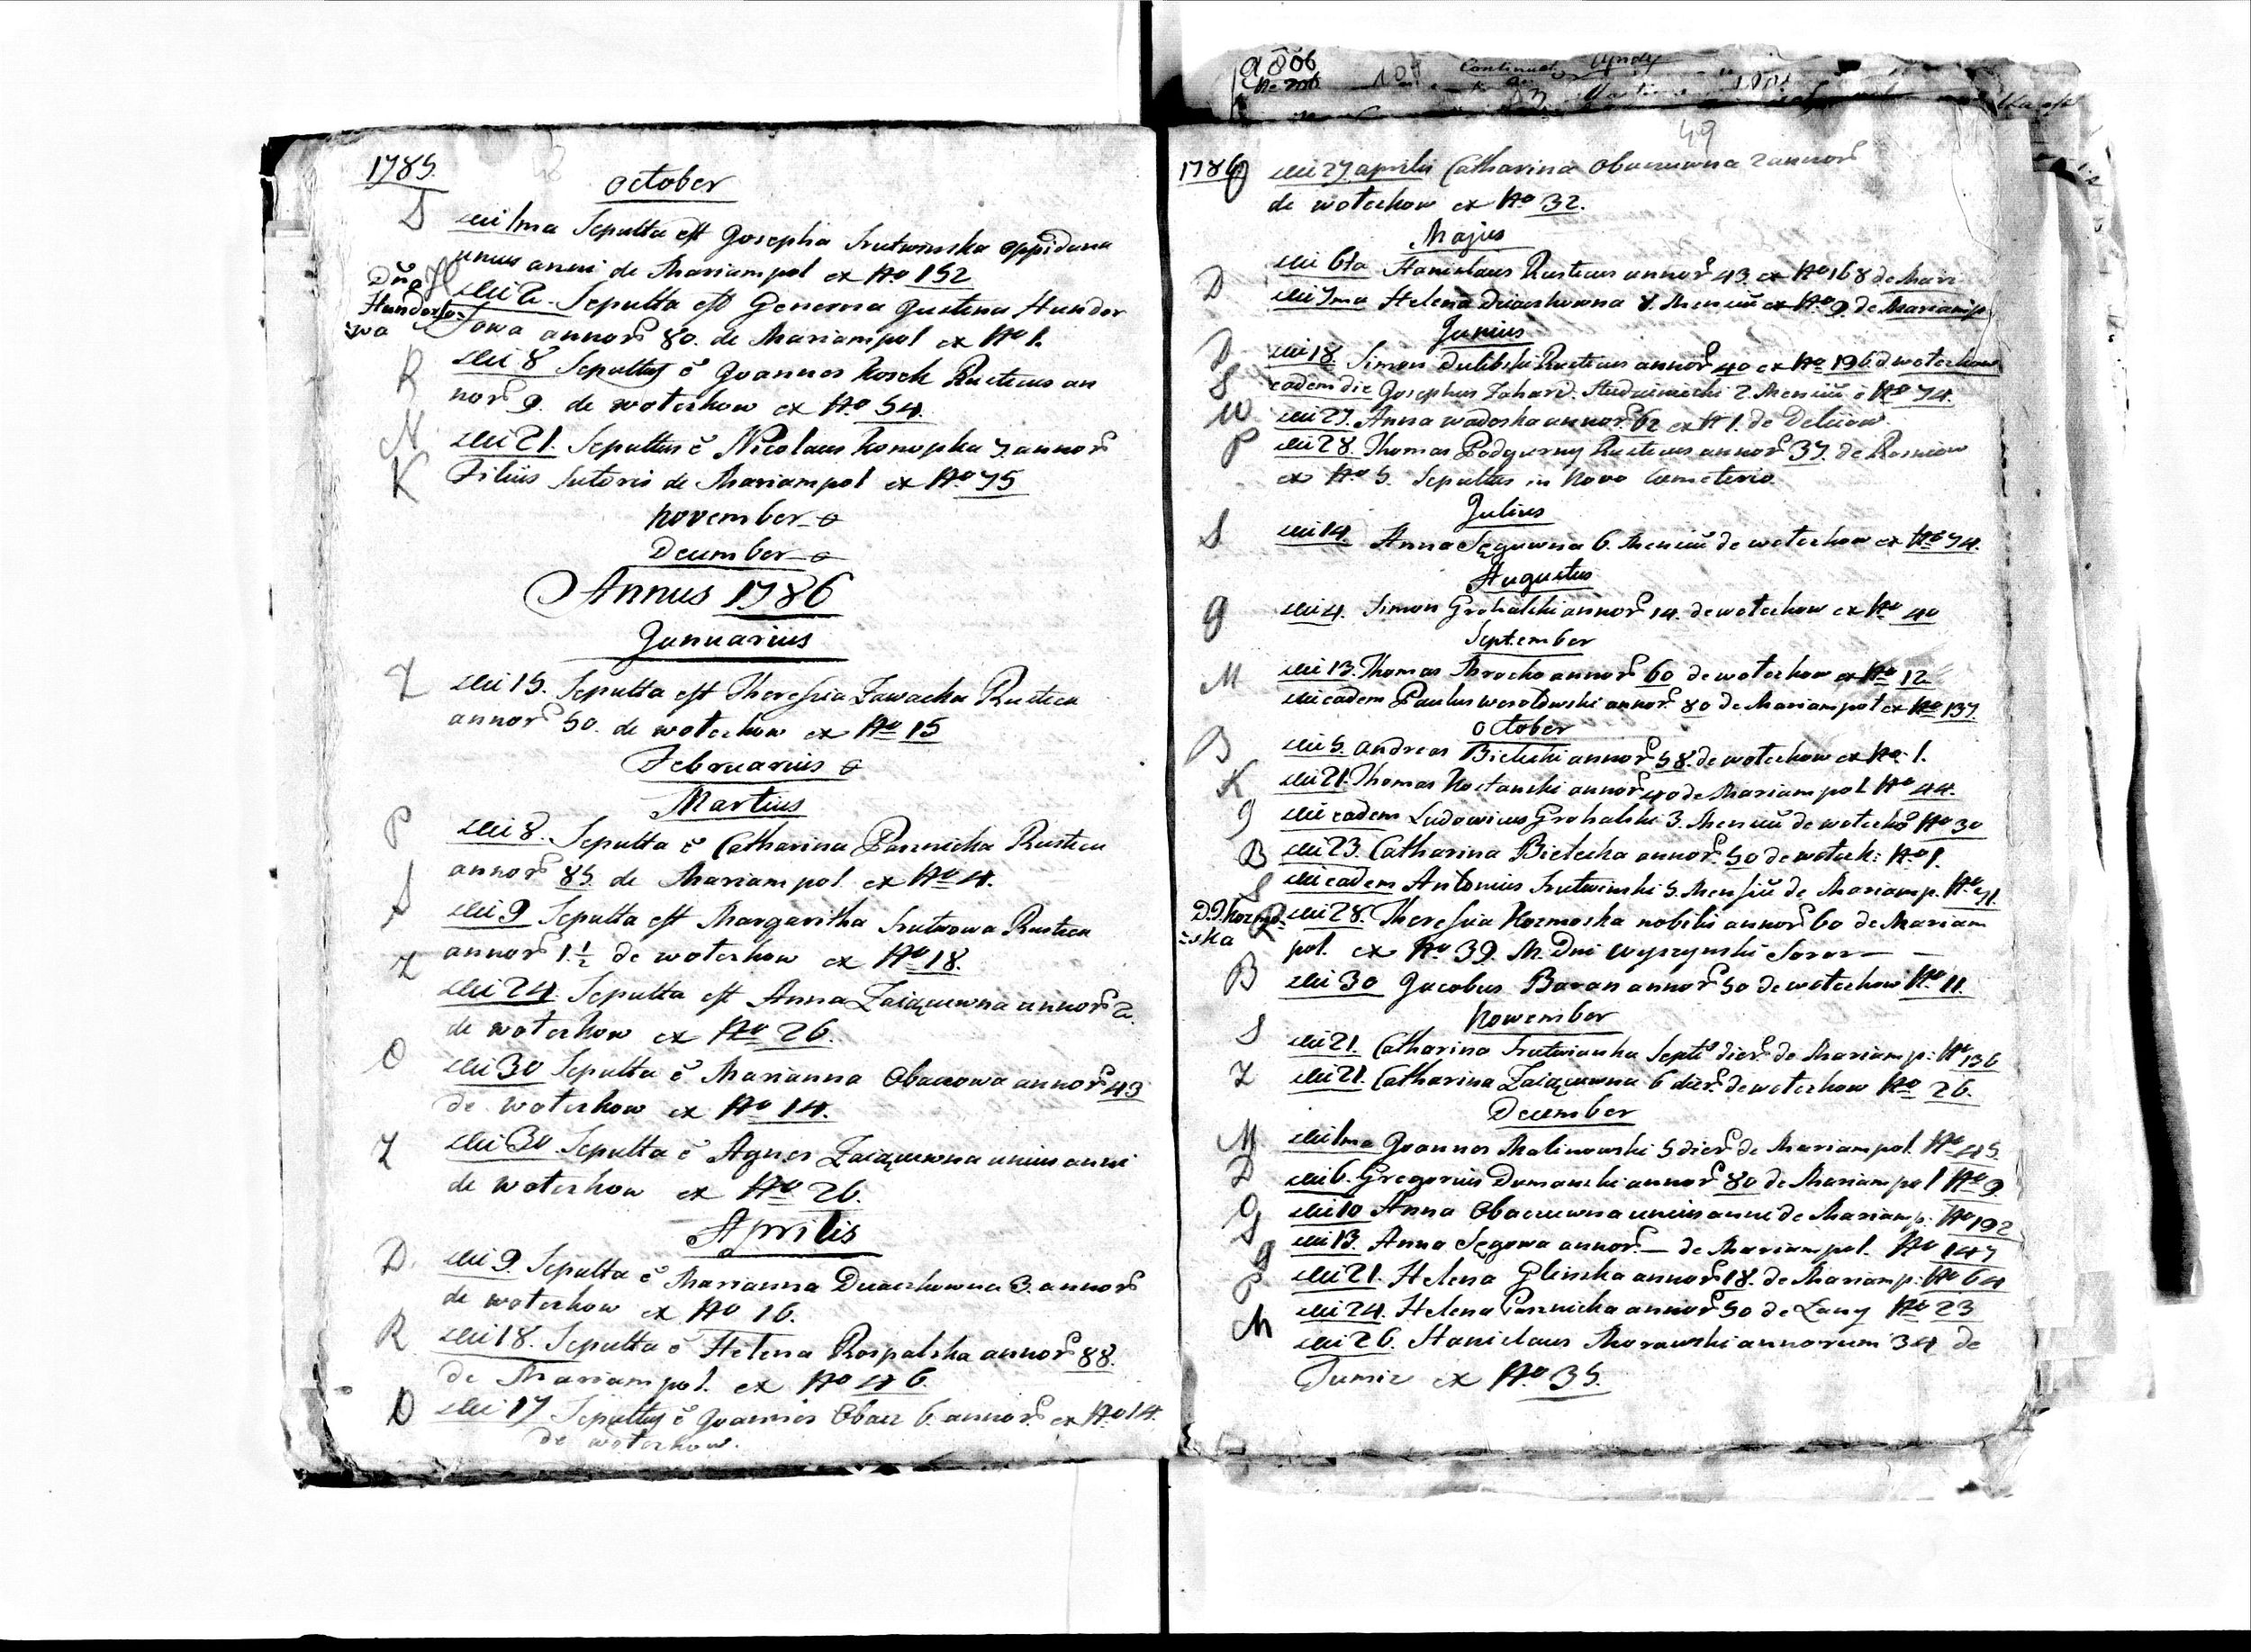 1785.
October
S die 1ma Sepulta est Josepha Srutwinska oppidana
unius anni de Mariampol ex No 152
Dna H die 2. Sepulta est Generosa Justina Hundor
Hundorfo=
wa
fowa annor 80. de Mariampol ex No 1.
R die 8 Sepultus e Joannes Rosek Rusticus an
nor 9. de wotczkow ex No 54.
N die 21. Sepultus e Nicolaus Konopka 7. annor
K Filius Sutoris de Mariampol ex No 75
November
December
Annus 1786
Januarius
Z die 15. Sepulta est Theresia Zawacka Rustica
annor 50. de wotczkow ex No 15
Februarius
Martius
P die 8. Sepulta e Catharina Parznicka Rustica
annor 85. de Mariampol ex No 4.
S die 9 Sepulta est Margaritha Srutwowa Rustica
annor 1.½ de wotczkow ex No 18.
Z die 24. Sepulta est Anna Zaiączuwna annor 2.
de wotczkow ex No 26.
O die 30 Sepulta e Marianna Obaczowa annor 43
de wotczkow ex No 14.
Z die 30 Sepulta e Agnes Zaiączuwna unius anni
de wotczkow ex No 26.
Aprilis
D. die 9. Sepulta e Marianna Duaczkowna 3. annor
de wotczkow ex No 16.
R die 18. Sepulta e Helena Rospalska annor 88.
de Mariampol. ex No 46.
O die 17 Sepultus e Joannes Obacz 6. annor. ex No 14.
de wotczkow.
49
1786 O die 27 aprilis Catharina Obaczuwna 2 annor
de wotczkow ex No 32.
Majus
die 6ta Stanislaus Rusticus annor 43 ex No 168 de Mari
D die 7ma Helena Duaczkowna 8. Mensiu ex No 9. de Mariamp.
Junius
D die 18. Simon Dulibski Rusticus annor 40 ex No 196 d wotczkow
S eadem die Josephus Zahard. Studzinischi 2. Mensiu e No 74.
W die 27. Anna wadoska annor 62 ex No 1. de Deliiow.
P die 28. Thomas Podgurny Rusticus annor 37. de Rosniow
ex No 5. Sepultus in Novo Cemeterio.
Julius
S die 14. Anna Sęguwna 6. Mensiu de wotczkow ex No 74.
Augustus
G die 4. Simon Grohalski annor 14. de wotczkow ex No 40
September
M die 13. Thomas Mrocho annor 60 de wotczkow ex No 12
die eadem Paulus wesotowski annor 80 de Mariampol ex No 137.
October
B die 5. Andreas Bielecki annor 58. de wotczkow ex No 1.
K die 21. Thomas Kostanski annor 40 de Mariampol No 44.
G die eadem Ludovicus Grohalski 3. Mensiu de wotczko No 30
B die 23. Catharina Bielecka annor 50 de wotczk: No 1.
S die eadem Antonius Srutwinski 5. Mensiu de Mariamp. No 71
D.D. Kozmo= R die 28. Theresia Kozmoska nobilis annor 60 de Mariam
=ska
pol. ex No 39. M. Dni Wyszynski Soror
B die 30 Jacobus Baran annor 50 de wotczkow No 11.
November
S die 21. Catharina Srutwianka Septe dier de Mariamp: No 136
Z die 21. Catharina Zaiączuwna 6 dier de wotczkow No 26.
December
M die 1ma Joannes Malinowski 5 dier de Mariampol. No 45.
D die 6. Gregorius Domanski annor 80 de Mariampol No 9
O die 10 Anna Obaczuwna unius anni de Mariamp: No 192
S die 13. Anna Sęgowa annor — de Mariampol. No 147
G die 21. Helena Glinska annor 18. de Mariamp: No 64
P die 24. Helena Parznicka annor 50 de Lany No 23
M die 26. Stanislaus Morawski annorum 34 de
Tumir ex No 35.